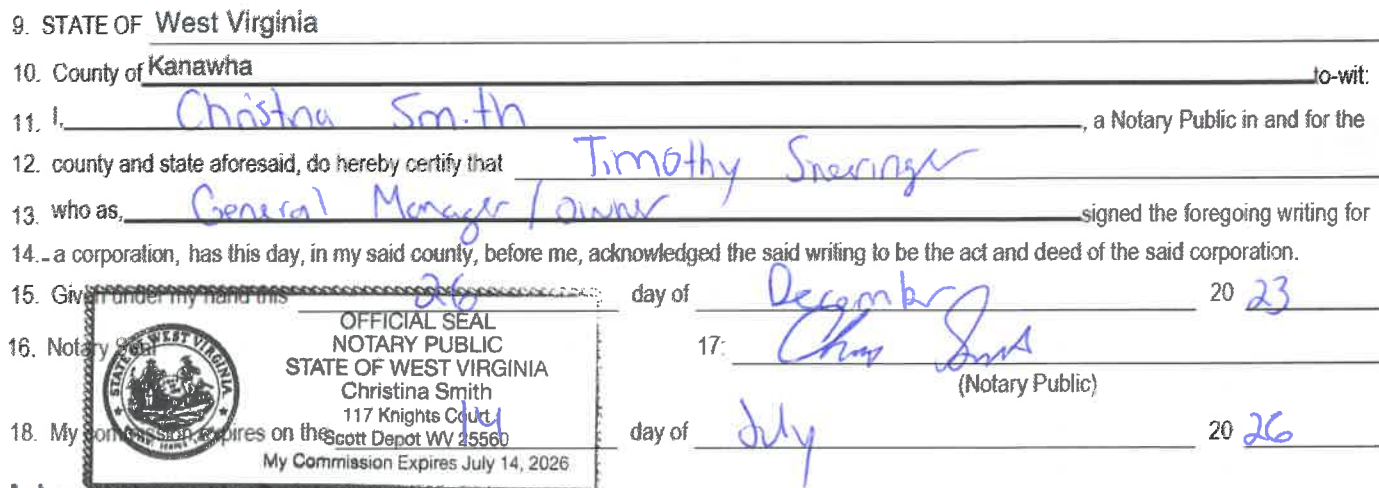 9. STATE OF West Virginia
10. County of Kanawha to-wit:
11. I, Christina Smith, a Notary Public in and for the
12. county and state aforesaid, do hereby certify that Timothy
13. who as, General Manager / owner signed the foregoing writing for
14. a corporation, has this day, in my said county, before me, acknowledged the said writing to be the act and deed of the said corporation.
15. Given under my hand this 26 day of December 20 23
16. Notary Seal 17:
(Notary Public)
OFFICIAL SEAL
NOTARY PUBLIC
STATE OF WEST VIRGINIA
Christina Smith
117 Knights Court
Scott Depot WV 25560
My Commission Expires July 14, 2026
STATE OF WEST VIRGINIA
18. My commission expires on the 14 day of July 20 26